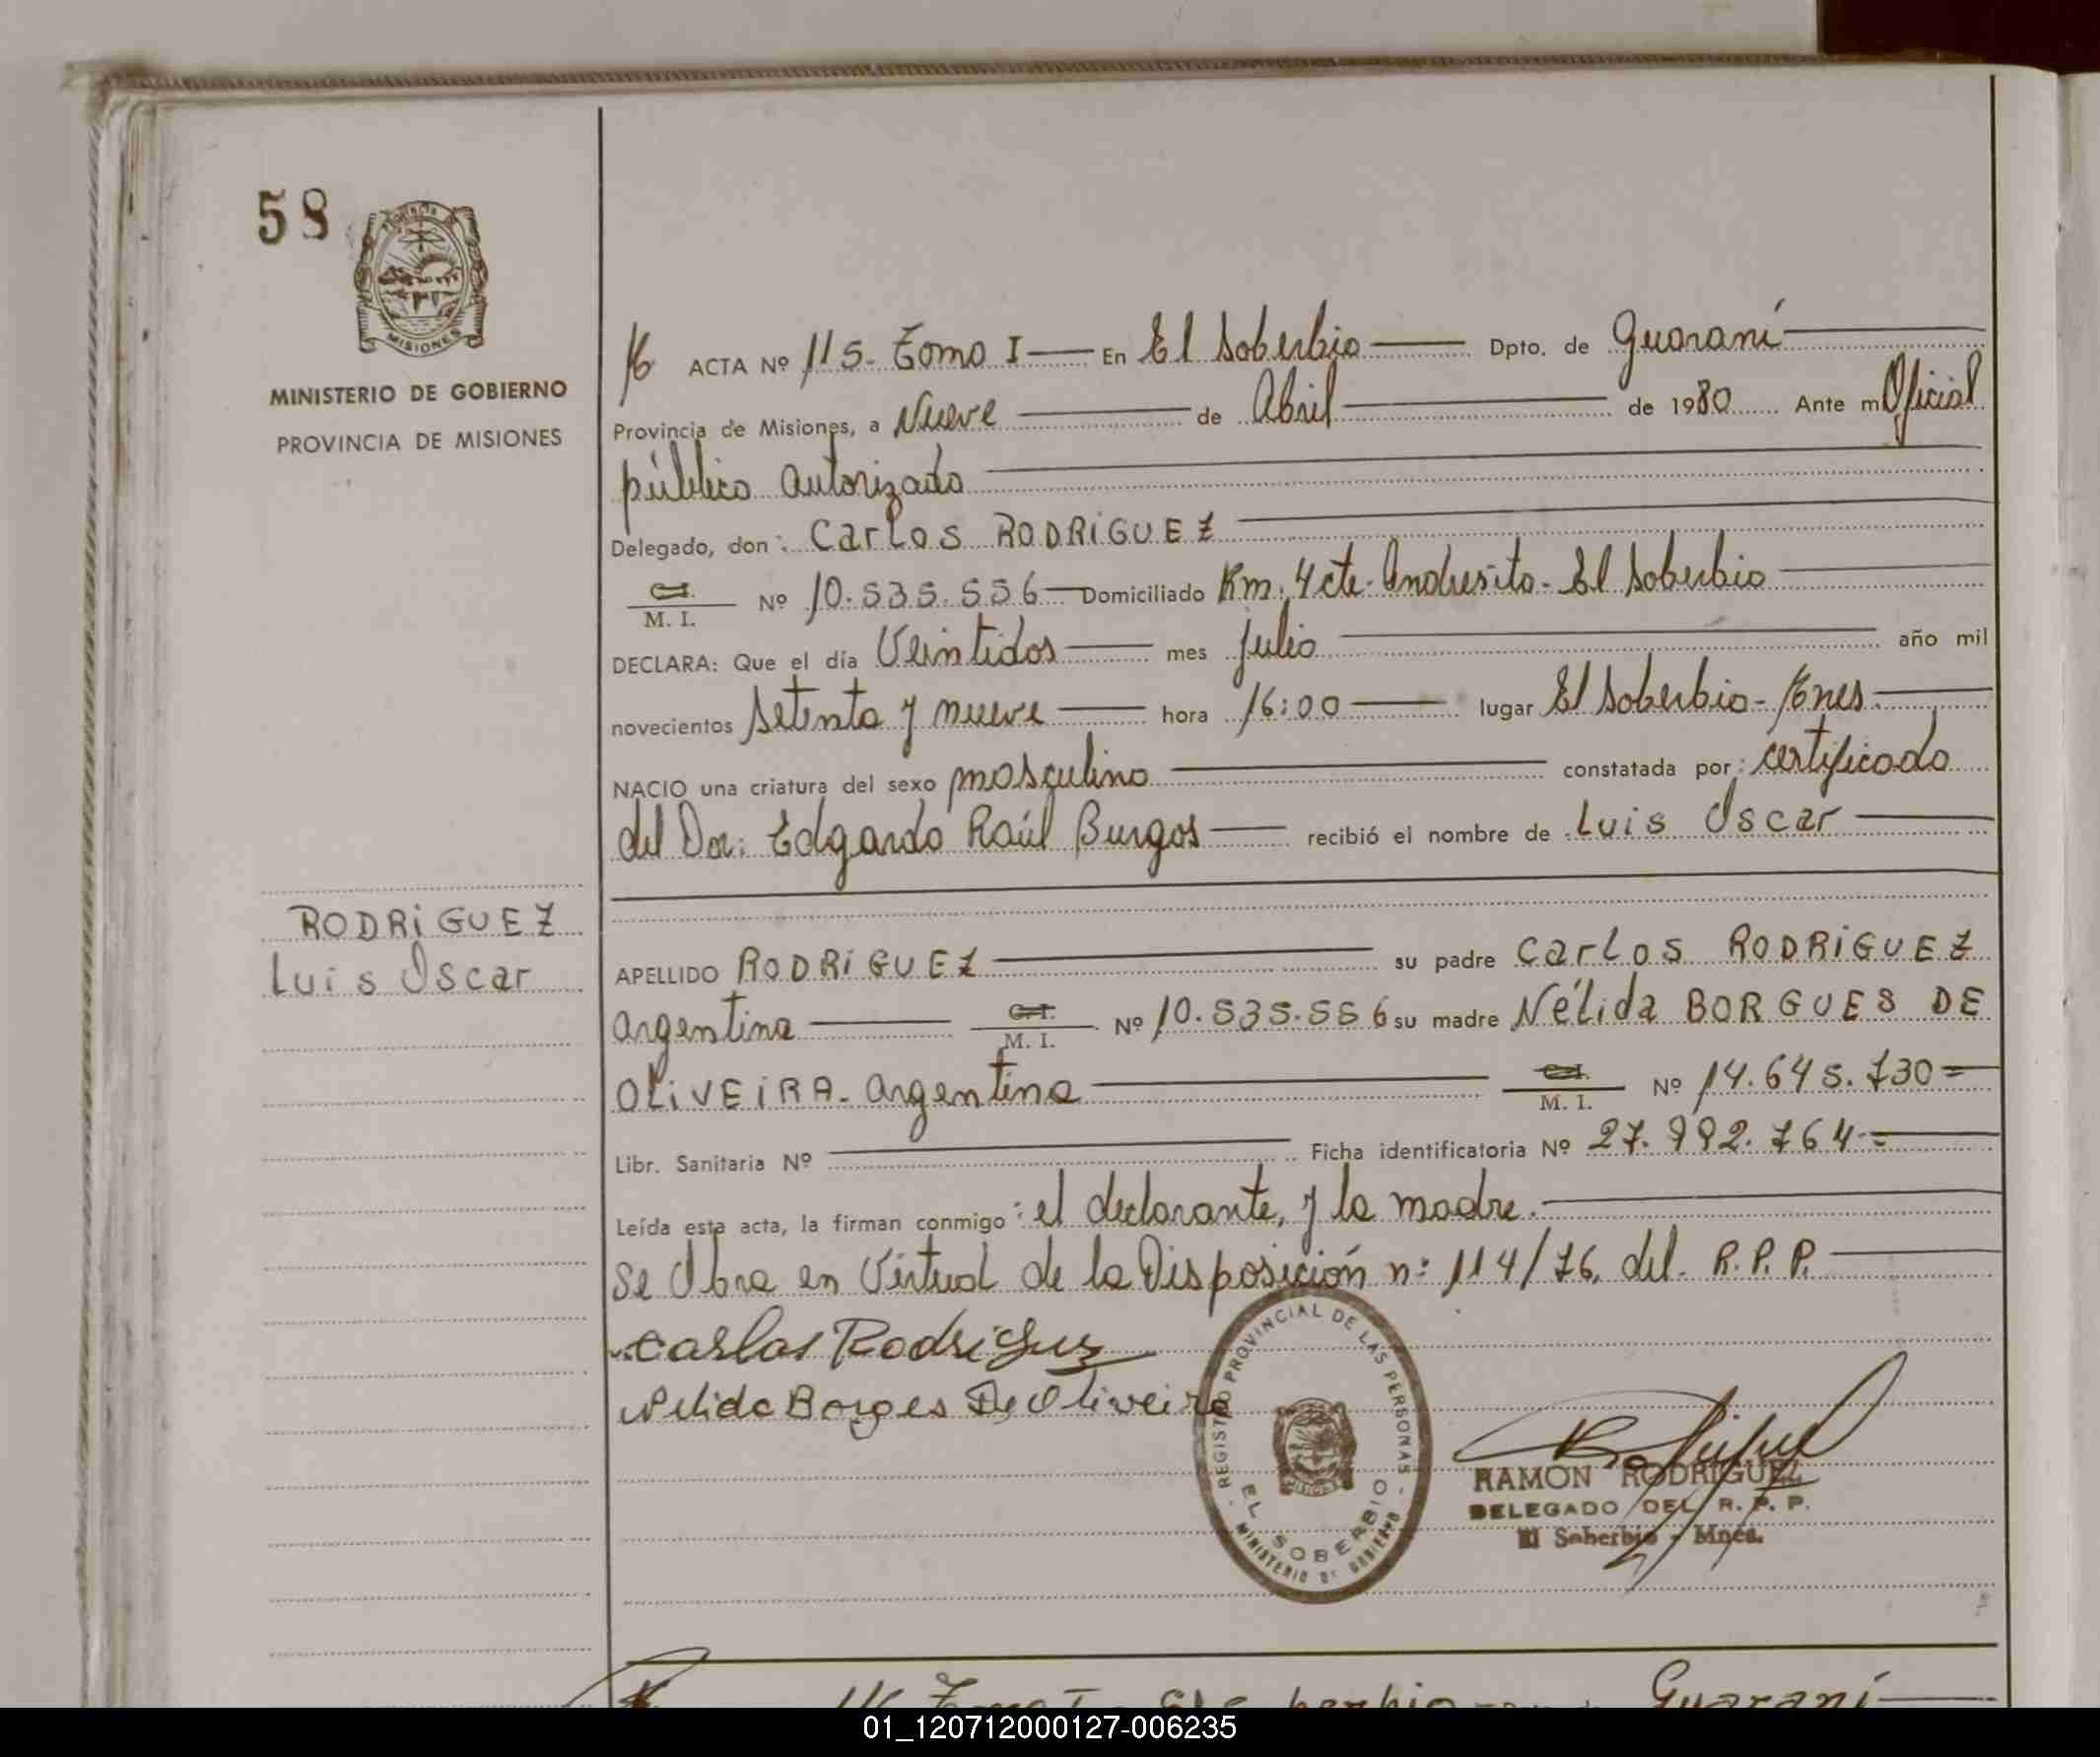 58
MISIONES
MINISTERIO DE GOBIERNO
PROVINCIA DE MISIONES
ACTA Nº 115. Tomo I — En El Soberbio — Dpto. de Guaraní
Provincia de Misiones, a Nueve — de Abril — de 1980 Ante m Oficial
público autorizado
Delegado, don: Carlos RODRIGUEZ
C.I.
M. I. Nº 10.535.556 — Domiciliado Km. 4 cte. Andresito - El Soberbio
DECLARA: Que el día Veintidos — mes julio — año mil
novecientos setenta y nueve — hora 16:00 — lugar El Soberbio - Mnes.
NACIO una criatura del sexo masculino — constatada por: certificado
del Dor: Edgardo Raúl Burgos — recibió el nombre de Luis Oscar
RODRIGUEZ
Luis Oscar
APELLIDO RODRIGUEZ — su padre Carlos RODRIGUEZ
argentino — C.I.
M. I. Nº 10.535.556 su madre Nélida BORGUES DE
OLIVEIRA. argentina — C.I.
M. I. Nº 14.645.730=
Libr. Sanitaria Nº — Ficha identificatoria Nº 27.992.764=
Leída esta acta, la firman conmigo: el declarante, y la madre.
Se Obra en Virtud de la Disposición nº 114/76, del. R.P.P.
Carlos Rodriguz
Nelida Borges De Oliveira
REGISTRO PROVINCIAL DE LAS PERSONAS
EL SOBERBIO
MINISTERIO DE GOBIERNO
RAMON RODRIGUEZ
DELEGADO DEL R. P. P.
El Soberbio - Mnes.
Tomo I Guaraní
01_120712000127-006235